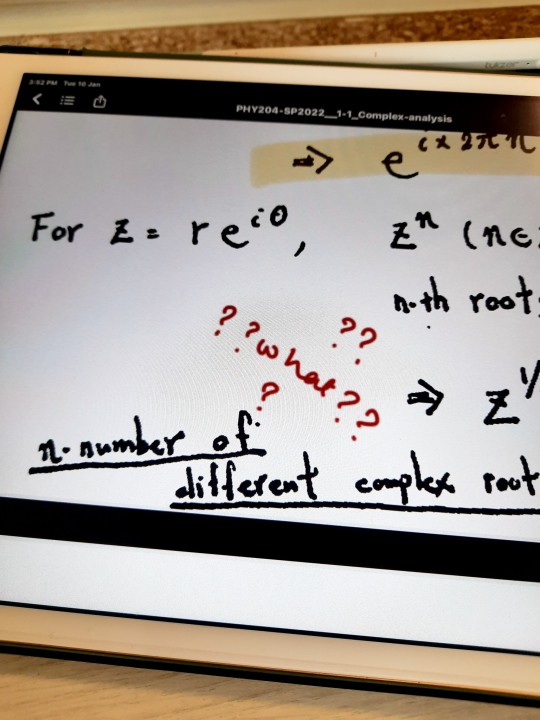 3:52 PM Tue 10 Jan
PHY204-SP2022__1-1_Complex-analysis
⇒ e^{i×2πn
For z = re^{iθ},
z^n (n∈
n-th root
? ? what ??
? ??
⇒ z^{1/
n-number of
different complex root